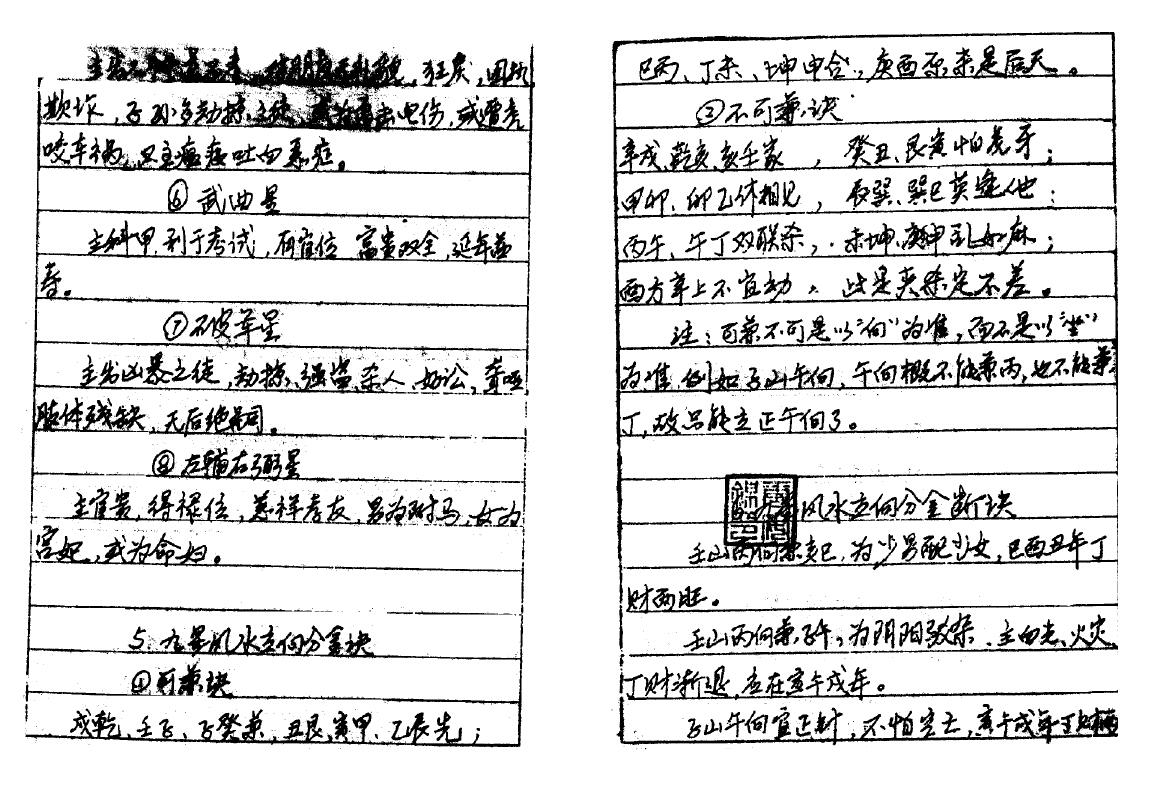 狂戾,固执
欺诈,子孙多劫掠之徒,电伤,或遭虎
咬车祸,且主瘟疫吐白羔症。
⑥ 武曲星
主科甲,利于考试,有官位 富贵双全,延年益
寿。
⑦ 破军星
主出凶暴之徒,劫掠、强盗、杀人、好讼,聋哑
肢体残缺,无后绝
⑧ 左辅右弼星
主官贵,得禄位,慈祥孝友,男为附马,女为
宫妃,或为命妇。
5. 九星风水立向分金诀
①可兼诀
戌乾、壬子、子癸兼,丑艮、寅甲、乙辰先;
巳丙、丁未、坤申合,庚酉原来是后天。
②不可兼诀
辛戌、乾亥、亥壬家,癸丑、艮寅怕虎牙;
甲卯、卯乙休相见,辰巽、巽巳莫逢他;
丙午、午丁双联杀,未坤、庚申乱如麻;
酉方辛上不宜动,此是夹杂定不差。
注:可兼不可是以“向”为准,而不是以“坐”
为准,例如子山午向,午向概不能兼丙,也不能兼
丁,故只能立正午向了。
风水立向分金断诀
壬山丙向兼亥巳,为少男配少女,巳酉丑年丁
财两旺。
壬山丙向兼子午,为阴阳驳杂,主血光、火灾,
丁财渐退,应在寅午戌年。
子山午向宜正针,不怕空亡,寅午戌年丁财